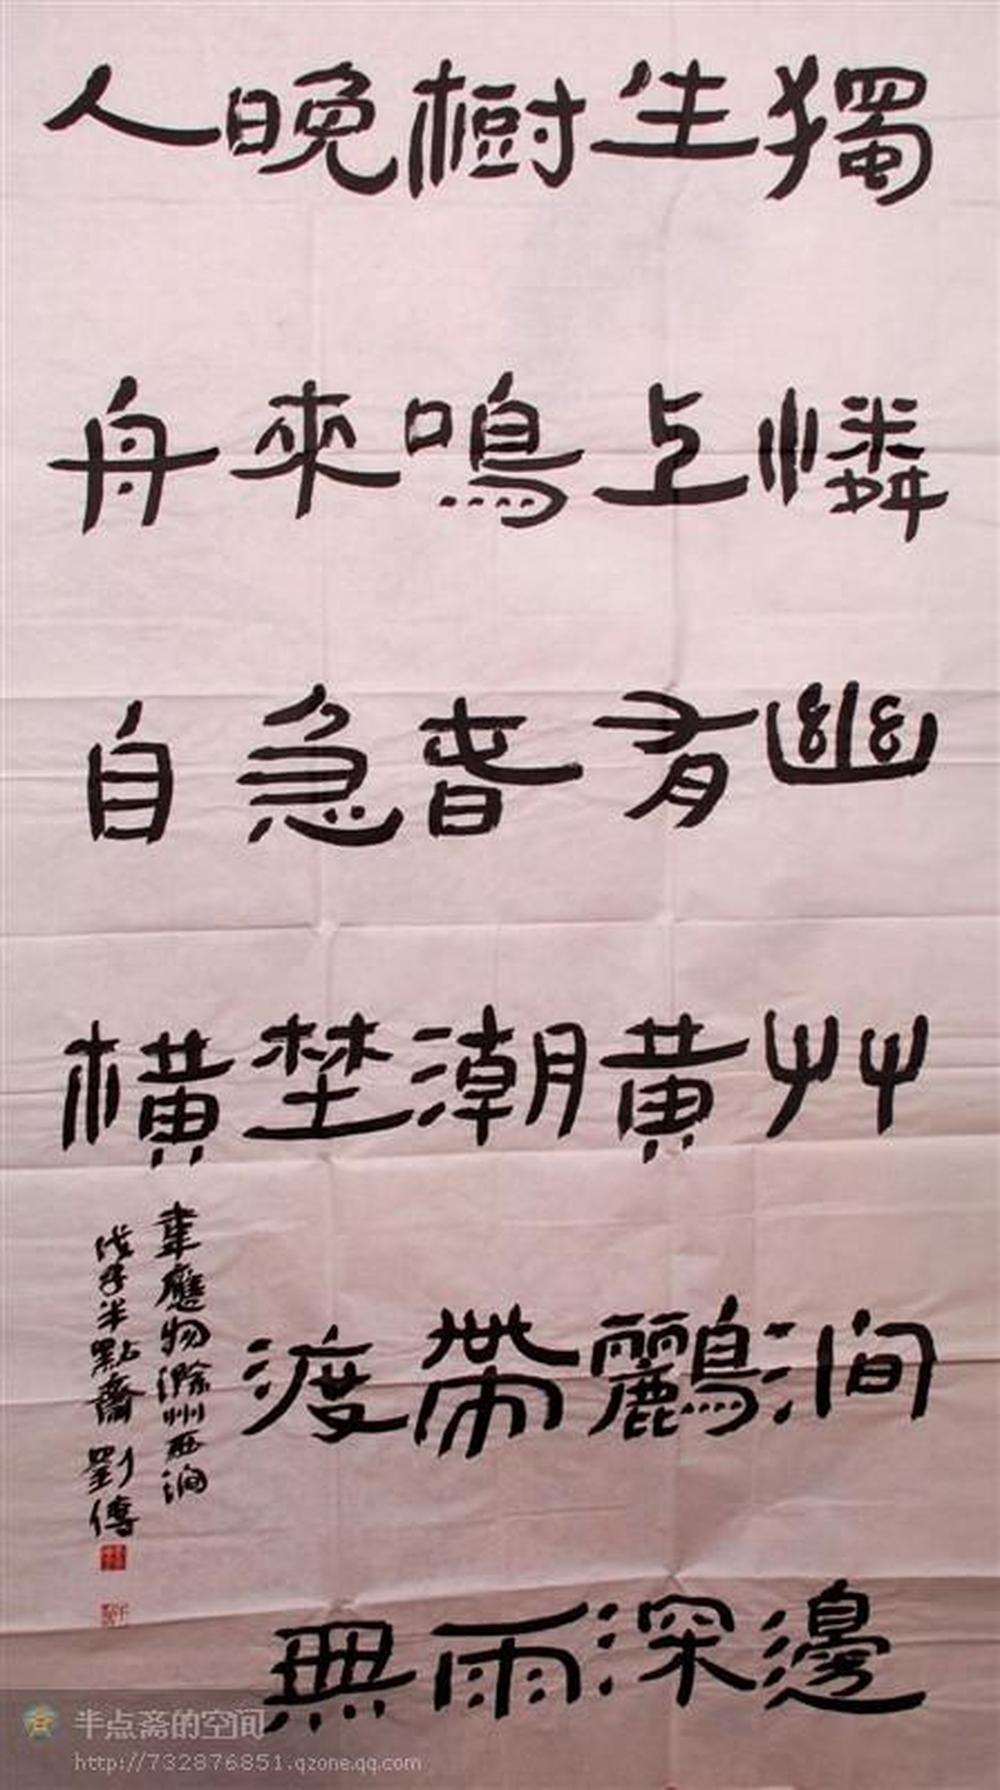 獨憐幽艸澗邊
生上有黃鸝深
樹鳴春潮帶雨
晚來急埜渡無
人舟自橫
韋應物滁州西澗
戊子半點齋劉
半点斋的空间
http://732876851.qzone.qq.com